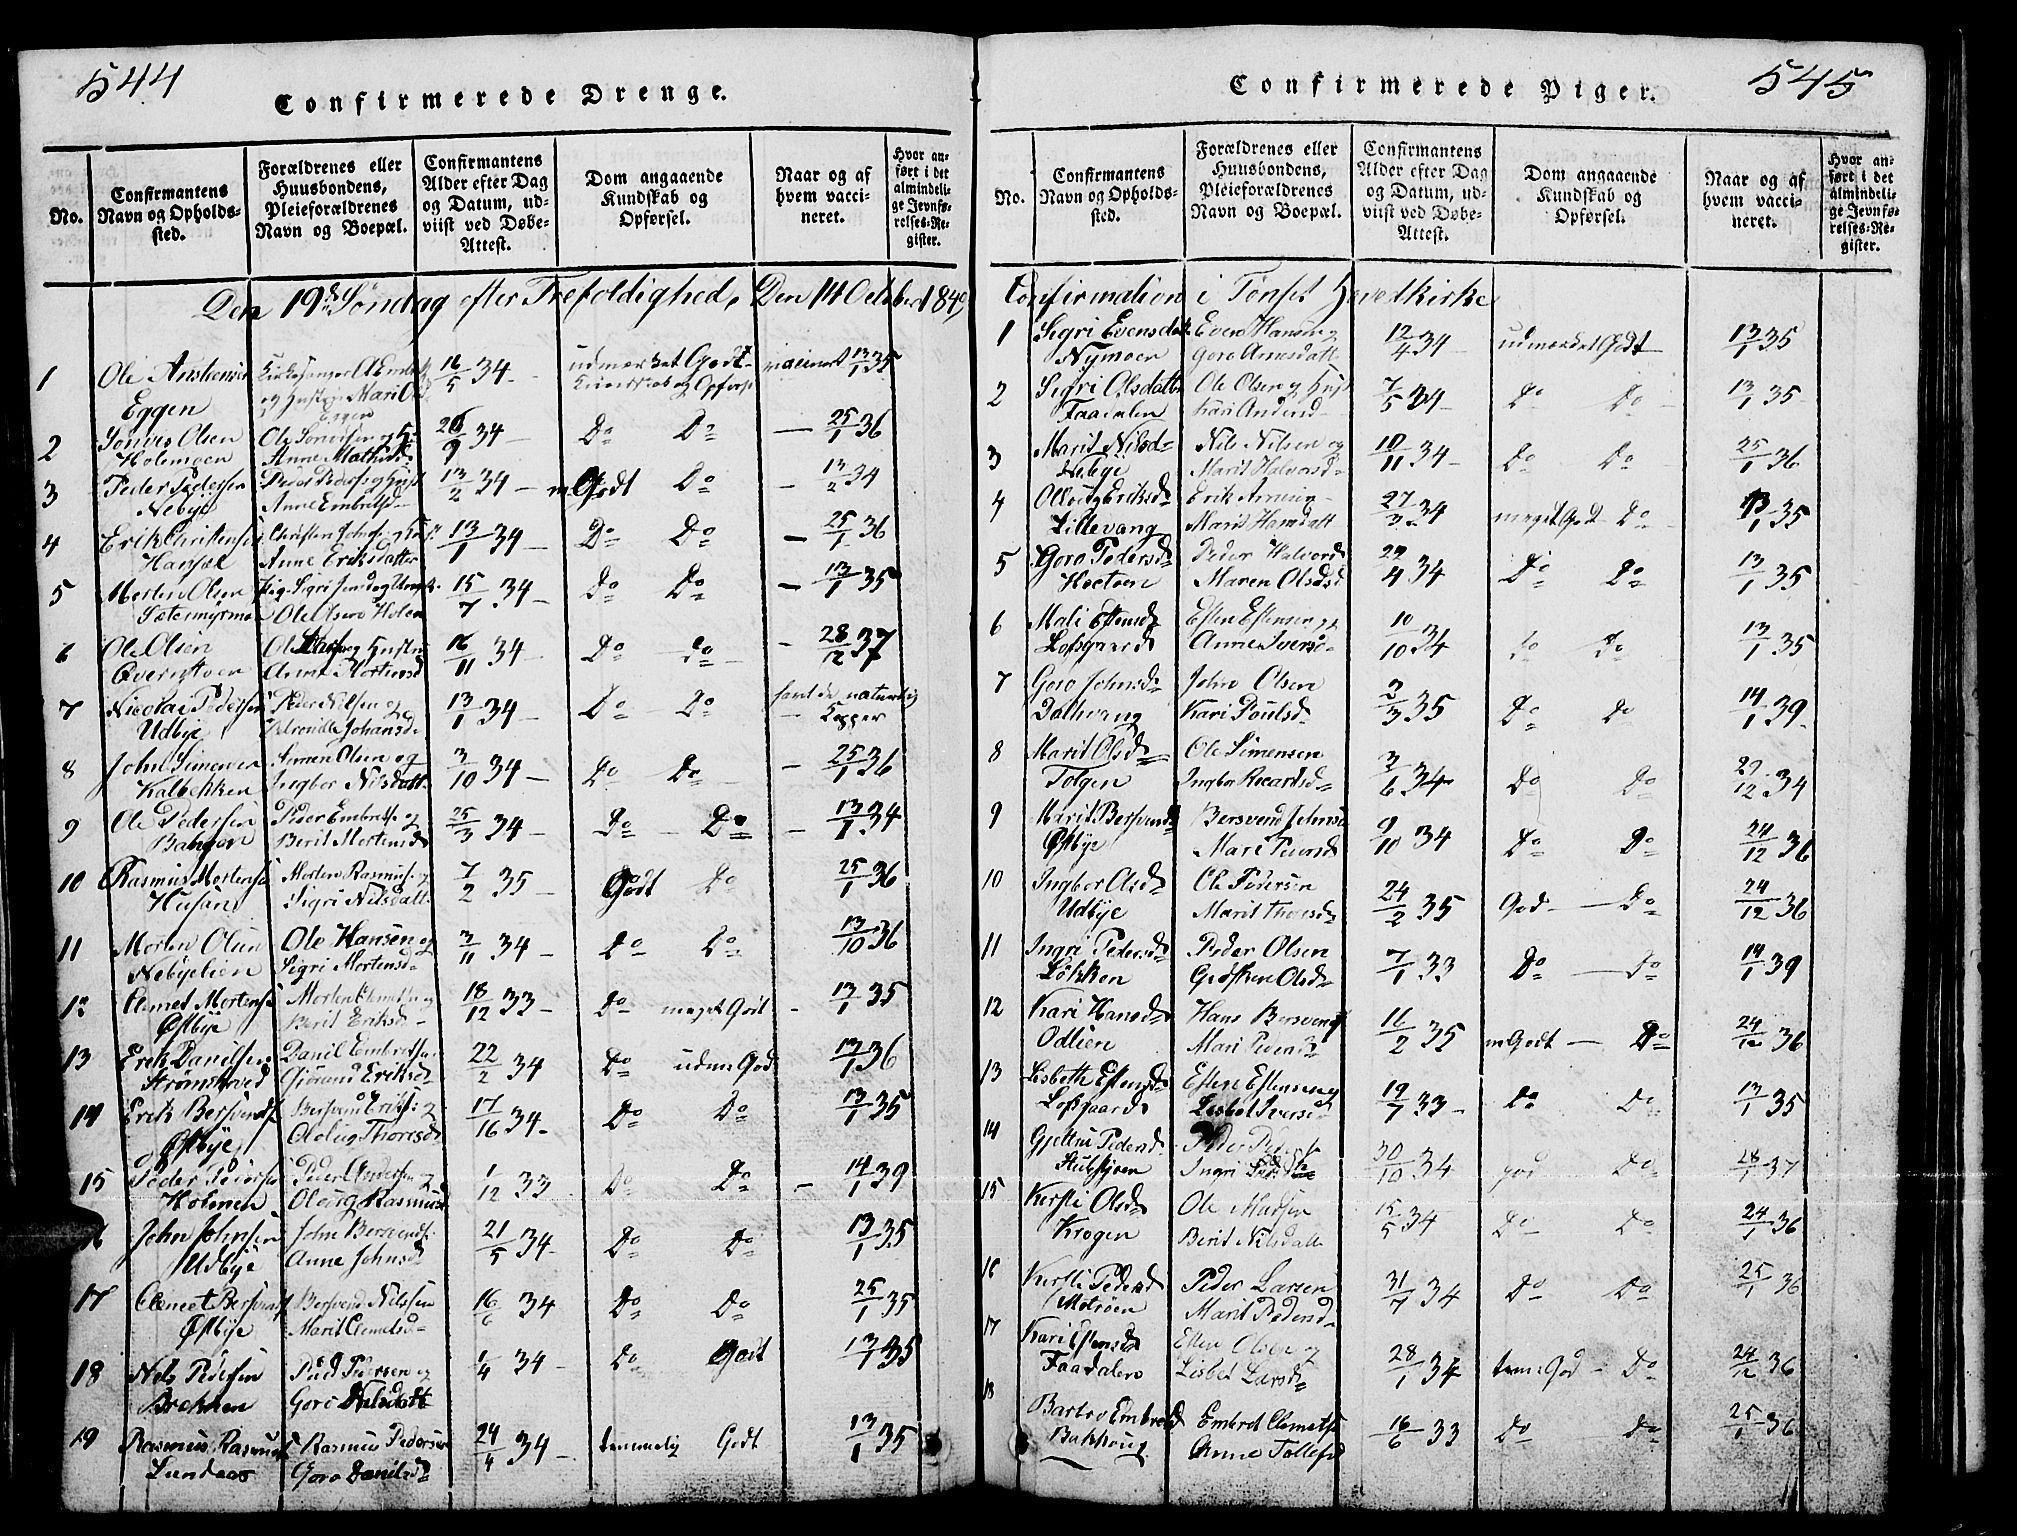 544
Confirmerede Drenge.
No.
Confirmantens Navn og Opholds-sted.
Forældrenes eller Huusbondens, Pleieforældrenes Navn og Boepæl.
Confirmantens Alder efter Dag og Datum, ud-viist ved Døbe-Attest.
Dom angaaende Kundskab og Opførsel.
Naar og af hvem vacci-neret.
Hvor an-ført i det almindeli-ge Jevnfø-relses-Re-gister.
Den 19de Søndag efter Trefoldighed, Den 14 October 1849
1 Ole Eggen Kirkesanger og Hustru Mari Eggen 16/5 34 udmærket Godt Kundskab og Opførsel vaccineret 13/1 35
2 Olsen Holmoen Ole og Anne Mathisd 26/9 34 Do Do 25/1 36
3 Peder Pedersen Nebye Peder Peders og Hust Anne Embretsd 13/2 34 m Godt Do 13/2 34
4 Erik Christensen Christen Johns og Anne Eriksdatter 13/1 34 Do Do 25/1 36
5 Morten Olsen Pig. Sigri og Ole Olsen Holen 15/7 34 Do Do 13/1 35
6 Ole Olsen Ole og Hustru Anne Mortensd 16/11 34 Do do 28/12 37
7 Nicolai Pedersen Udbye Peder Nilsen og Johansd 13/1 34 Do Do havt de naturlig Kopper
8 John Simensen Kalbekken Simen Olsen og Ingbor Nilsdatt 3/10 34 Do Do 25/1 36
9 Ole Pedersen Peder Embretse og Berit Mortensd 25/3 34 Do Do 13/1 34
10 Rasmus Mortens Husan Morten Rasmuse og Sigri Nilsdatt 7/2 35 Godt Do 25/1 36
11 Morten Olsen Nebyelien Ole Hansen og Sigri Mortensd 3/11 34 Do Do 13/10 36
12 Clemet Mortens Østbye Morten Clemets og Berit Eriksd 18/12 33 Do meget Godt 13/1 35
13 Erik Danilsen Strømshoved Danil Embretsen Gjørand Eriksd 22/2 34 Do udm: God 13/1 36
14 Erik Bersvends Østbye Bersvend Eriks: og Oloug Thoresd 17/16 34 Do Do 13/1 35
15 Peder Peders Holmen Peder Anders og Oloug Rasmusd 1/12 33 Do Do 14/1 39
16 John Johnsen Udbye John Bersvends: Anne Johnsd 21/5 34 Do Do 13/1 35
17 Clemet Bersvends Østbye Bersvend Nilssen Marit Clemetsd 16/6 34 Do Do 25/1 35
18 Nils Pedersen Brekken Pedersen og Goro Nilsdatt 1/4 34 Do Godt 13/1 35
19 Rasmus Rasmuss Lundaas Rasmus Pedersen Goro Danilsd 24/4 34 temmelig Godt 13/1 35
545
Confirmerede Piger.
No.
Confirmantens Navn og Opholds-sted.
Forældrenes eller Huusbondens, Pleieforældrenes Navn og Boepæl.
Confirmantens Alder efter Dag og Datum, ud-viist ved Døbe-Attest.
Dom angaaende Kundskab og Opførsel.
Naar og af hvem vacci-neret.
Hvor an-ført i det almindeli-ge Jevnfø-relses-Re-gister.
Confirmation i Tønset Hovedkirke
1 Sigri Evensdatt Nymoen Even Hansen og Goro Arnesdatt 12/4 34 udmærket Godt 13/1 35
2 Sigri Olsdatter Faadalen Ole Olsen og Hust Kari Andersd 7/5 34 Do Do 13/1 35
3 Marit Nilsd Nebye Nils Nilsen og Marit Halvorsd 10/11 34 Do Do 25/1 36
4 Oloug Eriksd Lillevang Erik Marit Hansdatt 27/3 34 meget God Do 13/1 35
5 Goro Pedersd Peder Halvors Maren Olsd 24/4 34 Do Do 13/1 35
6 Mali Estensd Lofsgaard Esten Estensen og Anne Iversd 10/10 34 do do 13/1 35
7 Goro Johnsd Dalvang John Olsen Kari Poulsd 2/3 35 Do Do 14/1 39
8 Marit Olsd Tolgen Ole Simensen Ingbor Ricartsd 3/6 34 Do Do 29/12 34
9 Marit Bersvends Østbye Bersvend Johns Mari Pedersd 9/10 34 Do Do 24/12 36
10 Ingbor Olsd Udbye Ole Pedersen Marit Thoresd 24/2 35 God Do 24/12 36
11 Ingri Pedersd Løkken Peder Olsen Olsd 7/1 33 Do Do 14/1 39
12 Kari Hansd Odlien Hans Bersvends Mari Pedersd 16/2 35 m Godt Do 24/12 36
13 Lisbeth Estensd Lofsgaard Esten Estensen og Lisbet Iversd 19/7 33 Do Do 13/1 35
14 Pedersd Stubsjoen Peder Peders Ingri 30/10 34 god Do 28/1 37
15 Kersti Olsd Krogen Ole Madsen Berit Nilsdatt 15/5 34 Do Do 24/1 36
16 Kersti Pedersd Motroen Peder Larsen Marit Pedersd 31/7 34 Do Do 25/1 36
17 Kari Estensd Faadalen Esten Olsen og Lisbet Larsd 28/1 34 tem: God Do 24/12 36
18 Barbro Embretsd Bakhaug Embret Clemets Anne Tollefsd 16/6 33 Do Do 25/1 36